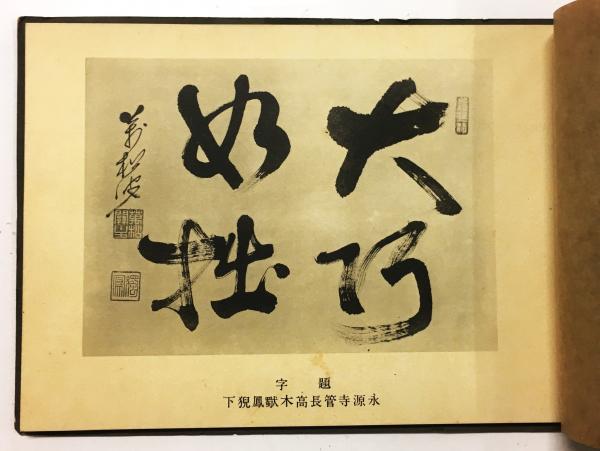 大巧
如拙
萬松
題字
永源寺管長高木獃鳳猊下